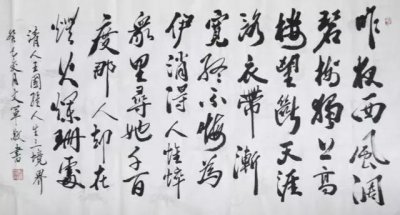 昨夜西風凋
碧樹獨上高
樓望斷天涯
路衣帶漸
寬終不悔為
伊消得人憔悴
眾里尋她千百
度那人却在
燈火爛珊處
清人王國維人生三境界
癸巳夏月文軍敬書